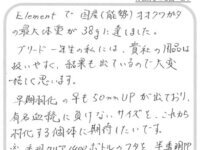 Elementで国産(能勢)オオクワガタ
の最大体重が38gに達しました。
ブリード一年生の私には、貴社の用品は
扱いやすく、結果も出ているので大変
感じて思います。
早期羽化の♀も50mmUPが出ており、
有名血統に負けないサイズを、これから
羽化する個体に期待したいです。
1400ボトルのフタを